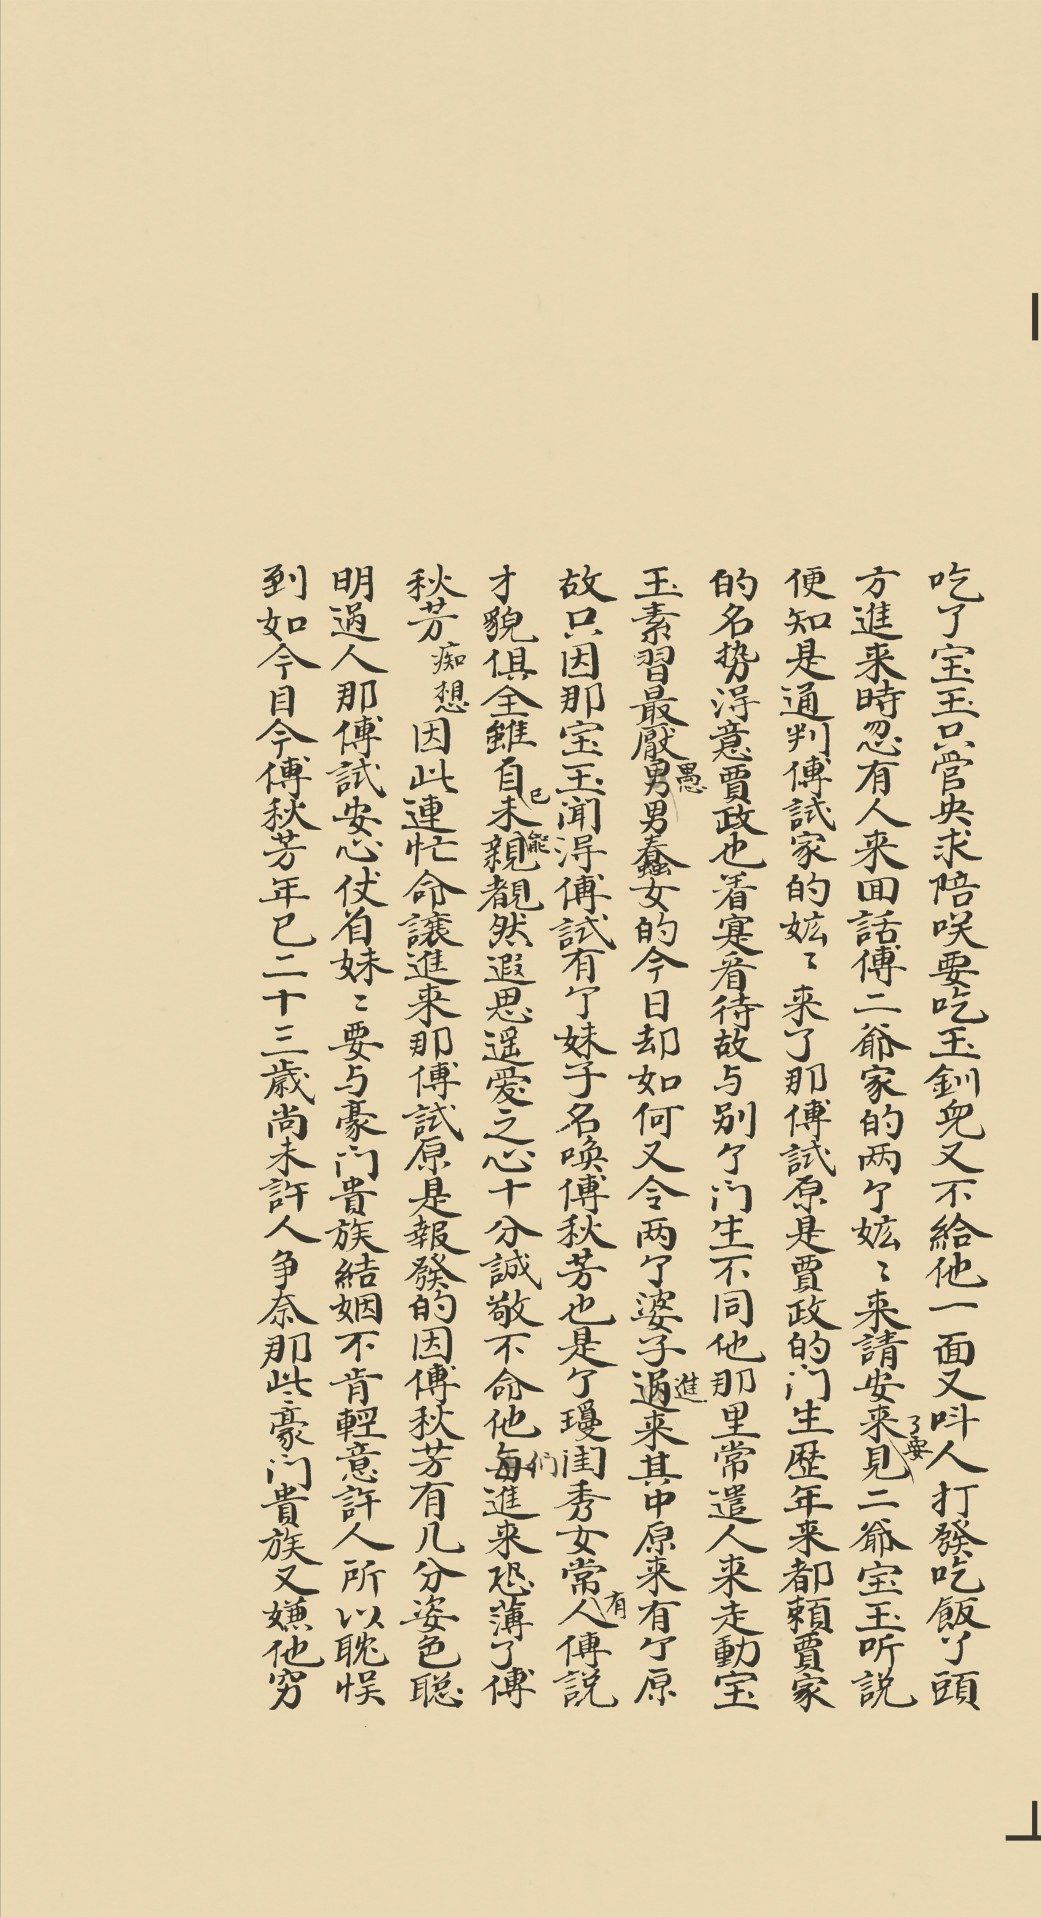 吃了宝玉只管央求陪咲要吃玉釧兒又不給他一面又呌人打發吃飯丫頭
方進来時忽有人来囬話傅二爺家的两个嬷〻来請安来見了要二爺宝玉听説
便知是通判傅試家的嬷〻来了那傅試原是賈政的门生歷年来都頼賈家
的名势得意賈政也着寔看待故与别个门生不同他那里常遣人来走動宝
玉素習最厭愚男男蠢女的今日却如何又令两个婆子過進来其中原来有个原
故只因那宝玉闻得傅試有个妹子名唤傅秋芳也是个瓊闺秀女常有人傅説
才貌俱全雖自己未能親覩然遐思遥爱之心十分誠敬不命他每们進来恐薄了傅
秋芳痴想因此連忙命譲進来那傅試原是報發的因傅秋芳有几分姿色聪
明過人那傅試安心仗着妹〻要与豪门貴族結姻不肯輕意許人所以耽悮
到如今目今傅秋芳年已二十三歳尚未許人争奈那些豪门貴族又嫌他穷